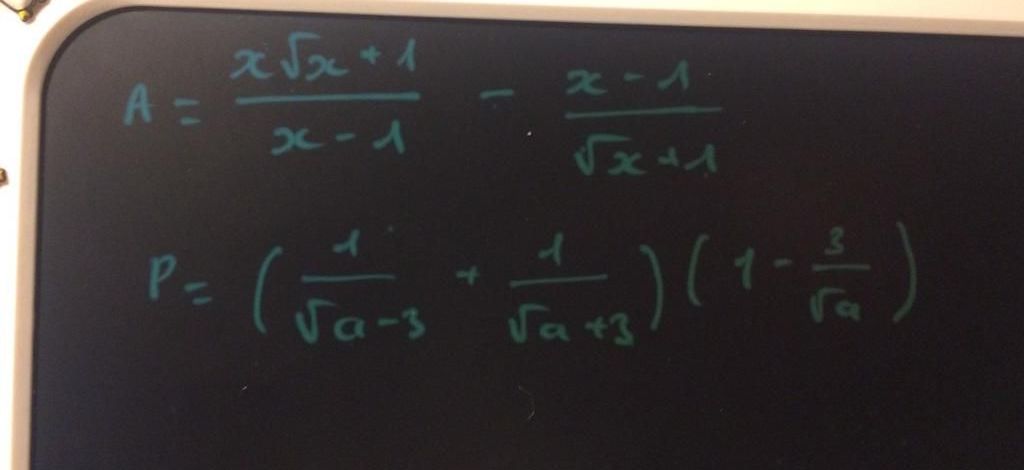 A = \frac{x\sqrt{x}+1}{x-1} - \frac{x-1}{\sqrt{x}+1}
P = \left(\frac{1}{\sqrt{a}-3} + \frac{1}{\sqrt{a}+3}\right)\left(1-\frac{3}{\sqrt{a}}\right)